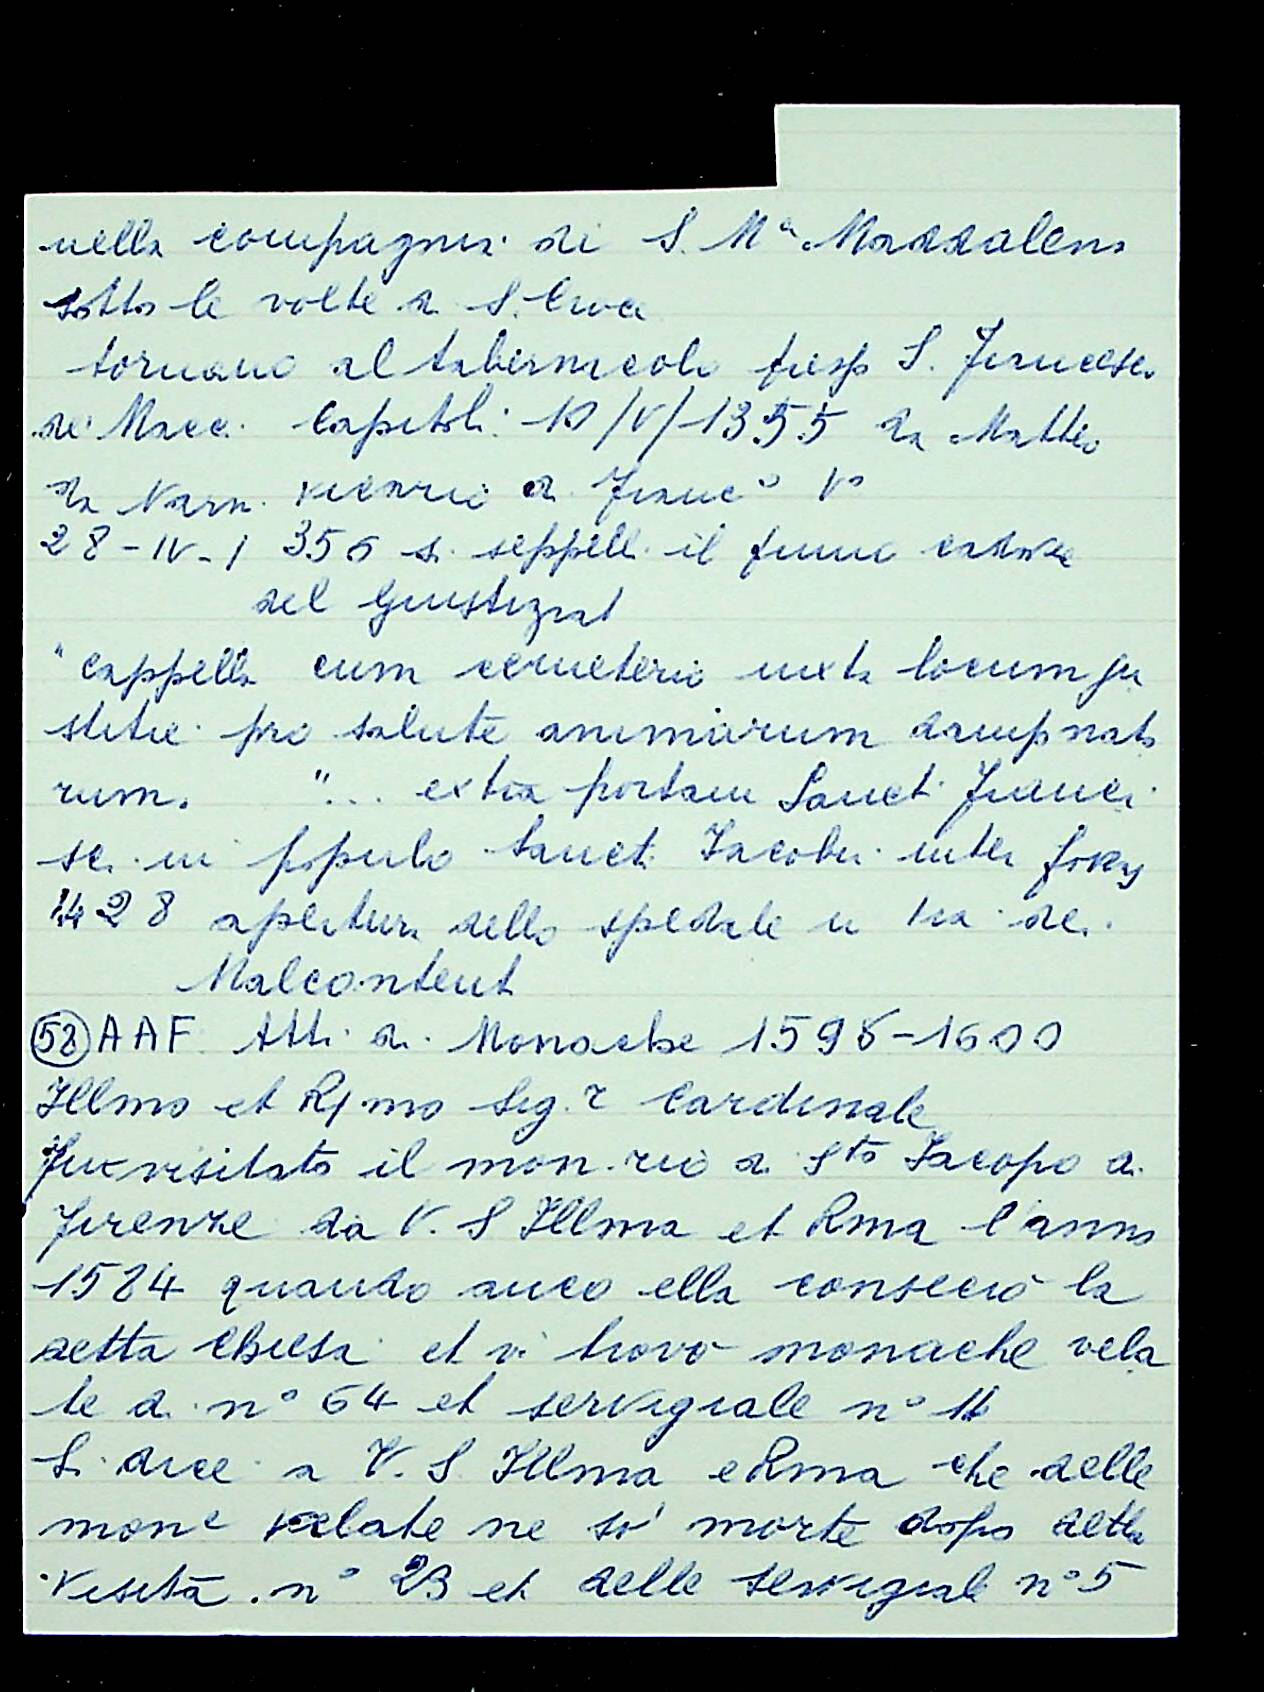 nella compagnia di S. Mª Maddalena
sotto le volte di S. Croce
tornano al tabernacolo presp S. Francesco
de' Macc. Capitoli 10/V/1355 da Matteo
da Narn. vicario di Franc° V°
28-IV-1356 si seppell. il primo cadave
del Giustiziat
"cappella cum cemeterio iuxta locum ju
stitie pro salute animarum dampnato
rum. "... extra portam Sancti Franci
sci in populo Sancti Jacobi inter foveas
1428 apertura dello spedale in via dei
Malcontent
(58) AAF. Atti di Monache 1598-1600
Illmo et R/mo Sig.r Cardinale
Fu visitato il mon.rio di Sto Jacopo di
Firenze da V. S Illma et Rma l'anno
1584 quando anco ella consecrò la
detta Chiesa et vi trovò monache vela
te di n° 64 et servigiale n° 11
Si dice a V. S. Illma e Rma che delle
monc velate ne so' morte dopo detta
visita . n° 23 et delle servigiale n° 5